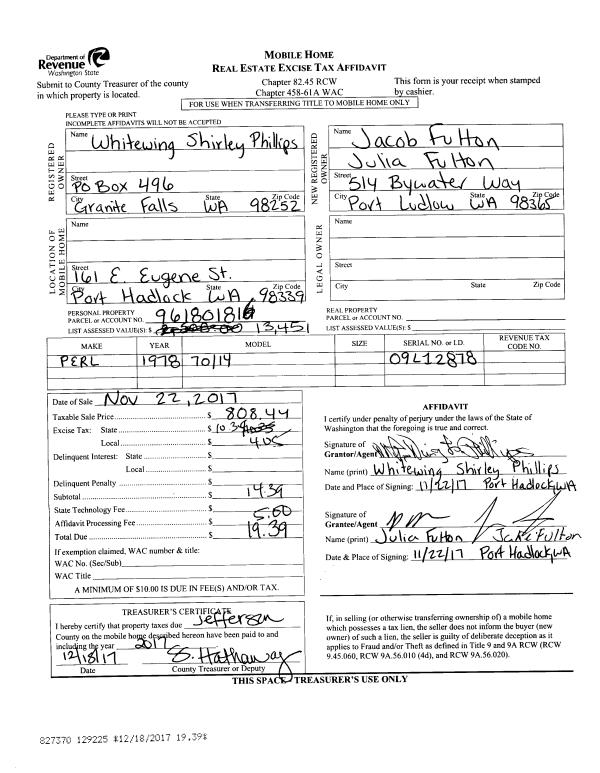 Department of
Revenue
Washington State
MOBILE HOME
REAL ESTATE EXCISE TAX AFFIDAVIT
Submit to County Treasurer of the county
in which property is located.
Chapter 82.45 RCW
Chapter 458-61A WAC
This form is your receipt when stamped
by cashier.
FOR USE WHEN TRANSFERRING TITLE TO MOBILE HOME ONLY
PLEASE TYPE OR PRINT
INCOMPLETE AFFIDAVITS WILL NOT BE ACCEPTED
REGISTERED OWNER
Name Whitewing Shirley Phillips
Street PO Box 496
City Granite Falls State WA Zip Code 98252
NEW REGISTERED OWNER
Name Jacob Fulton
Julia Fulton
Street 514 Bywater Way
City Port Ludlow State WA Zip Code 98365
LOCATION OF MOBILE HOME
Name
Street 161 E. Eugene St.
City Port Hadlock State WA Zip Code 98339
LEGAL OWNER
Name
Street
City State Zip Code
PERSONAL PROPERTY
PARCEL or ACCOUNT NO. 961801816
LIST ASSESSED VALUE(S): $ 13,451
REAL PROPERTY
PARCEL or ACCOUNT NO.
LIST ASSESSED VALUE(S): $
MAKE YEAR MODEL SIZE SERIAL NO. or I.D. REVENUE TAX CODE NO.
PERL 1978 70/14 09L12878
Date of Sale Nov 22, 2017
Taxable Sale Price $ 808.44
Excise Tax: State $ 10.34
Local $ 4.05
Delinquent Interest: State $
Local $
Delinquent Penalty $
Subtotal $ 14.39
State Technology Fee $ 5.00
Affidavit Processing Fee $
Total Due $ 19.39
If exemption claimed, WAC number & title:
WAC No. (Sec/Sub)
WAC Title
A MINIMUM OF $10.00 IS DUE IN FEE(S) AND/OR TAX.
AFFIDAVIT
I certify under penalty of perjury under the laws of the State of
Washington that the foregoing is true and correct.
Signature of
Grantor/Agent
Name (print) Whitewing Shirley Phillips
Date and Place of Signing: 11/22/17 Port Hadlock, WA
Signature of
Grantee/Agent
Name (print) Julia Fulton Jake Fulton
Date & Place of Signing: 11/22/17 Port Hadlock, WA
TREASURER'S CERTIFICATE
I hereby certify that property taxes due Jefferson
County on the mobile home described hereon have been paid to and
including the year 2017
12/18/17 S. Hathaway
Date County Treasurer or Deputy
If, in selling (or otherwise transferring ownership of) a mobile home
which possesses a tax lien, the seller does not inform the buyer (new
owner) of such a lien, the seller is guilty of deliberate deception as it
applies to Fraud and/or Theft as defined in Title 9 and 9A RCW (RCW
9.45.060, RCW 9A.56.010 (4d), and RCW 9A.56.020).
THIS SPACE TREASURER'S USE ONLY
827370 129225 *12/18/2017 19.39*